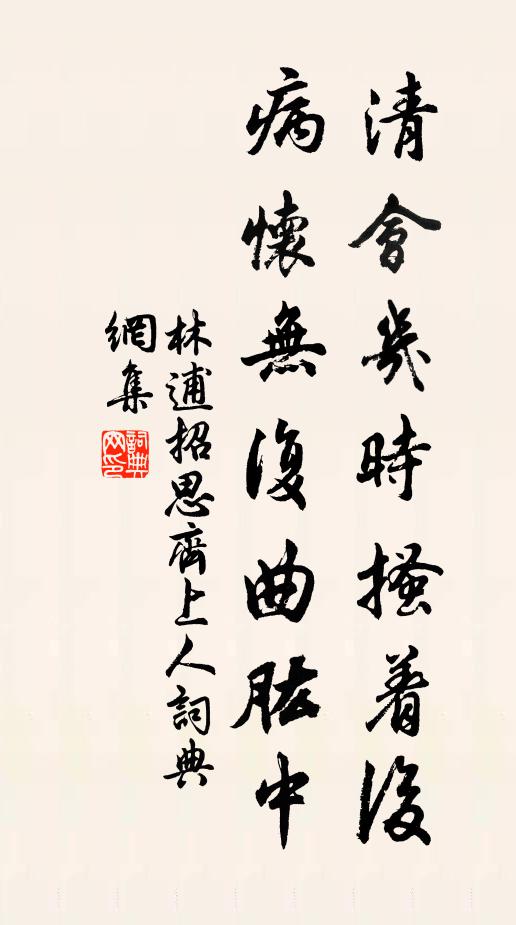 清會幾時搔着後
病懷無復曲肱中
林逋招思齊上人詞典
網集
詞典
网印